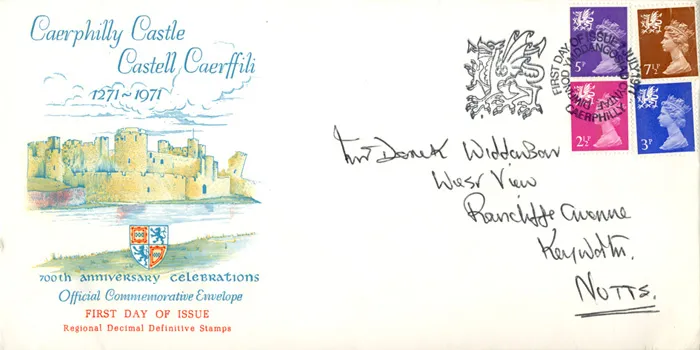 Caerphilly Castle
Castell Caerffili
1271~1971
700th anniversary celebrations
Official Commemorative Envelope
FIRST DAY OF ISSUE
Regional Decimal Definitive Stamps
FIRST DAY OF ISSUE 7 JULY 1971
CAERPHILLY
5P
7½P
2½P
3P
Derek Widdowson
West View
Rancliffe Avenue
Keyworth.
NOTTS.